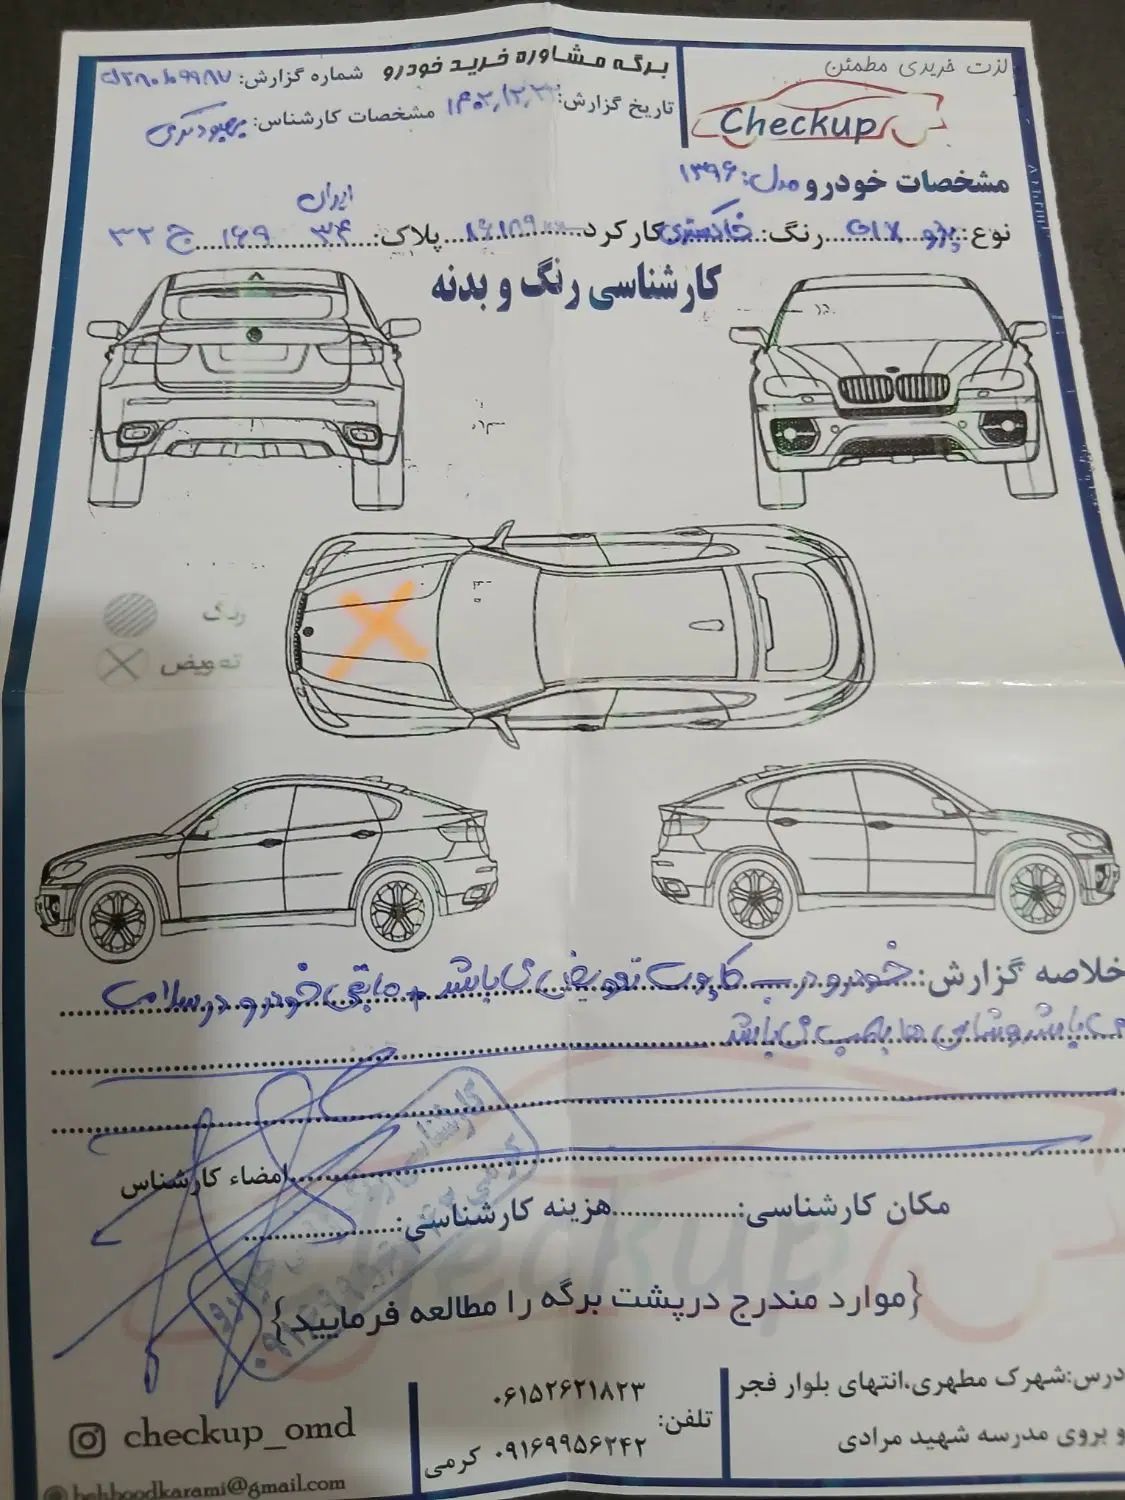 لذت خریدی مطمئن
Checkup
برگه مشاوره خرید خودرو
شماره گزارش:
تاریخ گزارش:
مشخصات کارشناس:
مشخصات خودرو مدل: ۱۳۹۶
ایران
نوع: پژو رنگ: خاکستری کارکرد پلاک: ۳۴ ۱۶۹ ج ۳۲
کارشناسی رنگ و بدنه
رنگ
تعویض
خلاصه گزارش: خودرو درب کاپوت تعویض می باشد و مابقی خودرو در سلامت
می باشد می باشد
امضاء کارشناس
مکان کارشناسی: هزینه کارشناسی:
{موارد مندرج درپشت برگه را مطالعه فرمایید}
درس:شهرک مطهری،انتهای بلوار فجر
و بروی مدرسه شهید مرادی
تلفن:
۰۶۱۵۲۶۲۱۸۲۳
۰۹۱۶۹۹۵۶۲۴۲ کرمی
checkup_omd
behboodkarami@gmail.com